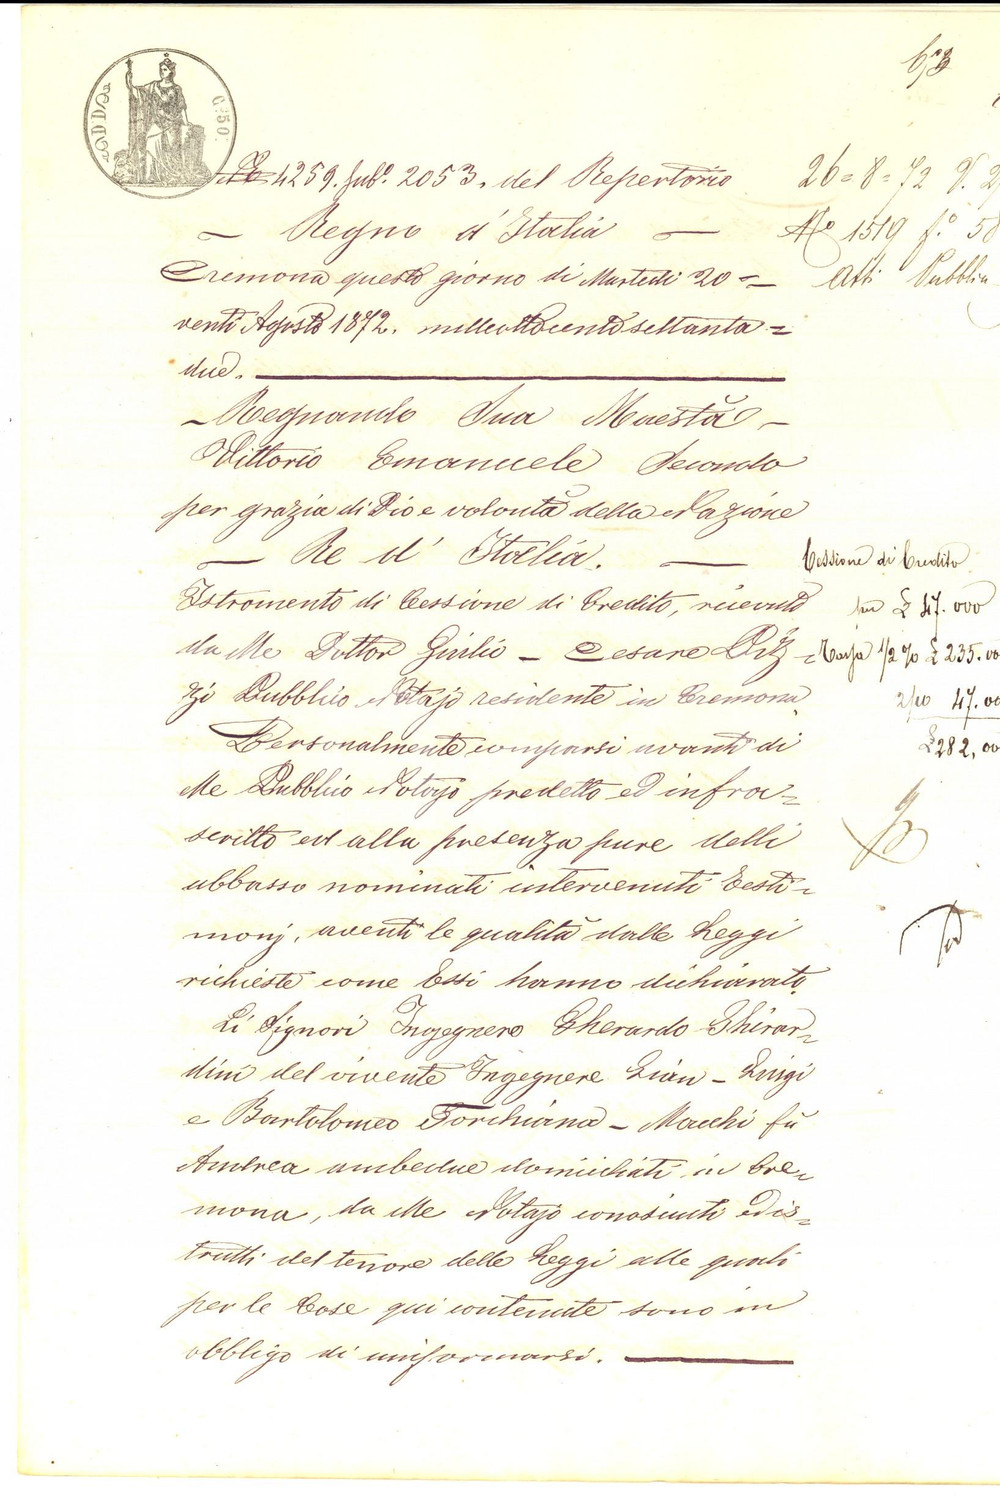 C.mi 50
N.o 4259. sub.o 2053. del Repertorio
Regno d'Italia
Cremona questo giorno di Martedi 20=
venti Agosto 1872. milleottocentosettanta=
due.
Regnando Sua Maestà
Vittorio Emanuele Secondo
per grazia di Dio e volontà della Nazione
Re d' Italia.
Istromento di Cessione di Credito, ricevuto
da Me Dottor Giulio - Cesare Piz=
zi Pubblico Notajo residente in Cremona
Personalmente comparsi avanti di
Me Pubblico Notajo predetto ed infra=
scritto ed alla presenza pure delli
abbasso nominati intervenuti Testi=
monj, aventi le qualità dalle Leggi
richieste come Essi hanno dichiarato,
Li Signori Ingegnere Gherardo Ghirar=
dini del vivente Ingegnere Gian - Luigi
e Bartolomeo Torchiana - Macchi fù
Andrea ambedue domiciliati in Cre=
mona, da Me Notajo conosciuti ed is=
trutti del tenore delle Leggi alle quali
per le Cose qui contenute sono in
obbligo di uniformarsi.
26=8=72 V. 2
N.o 1519 f.o 58
Atti Pubblici
Cessione di Credito
per £ 47.000
Tassa 1/2 % £ 235.00
2/10 47.00
£ 282,00